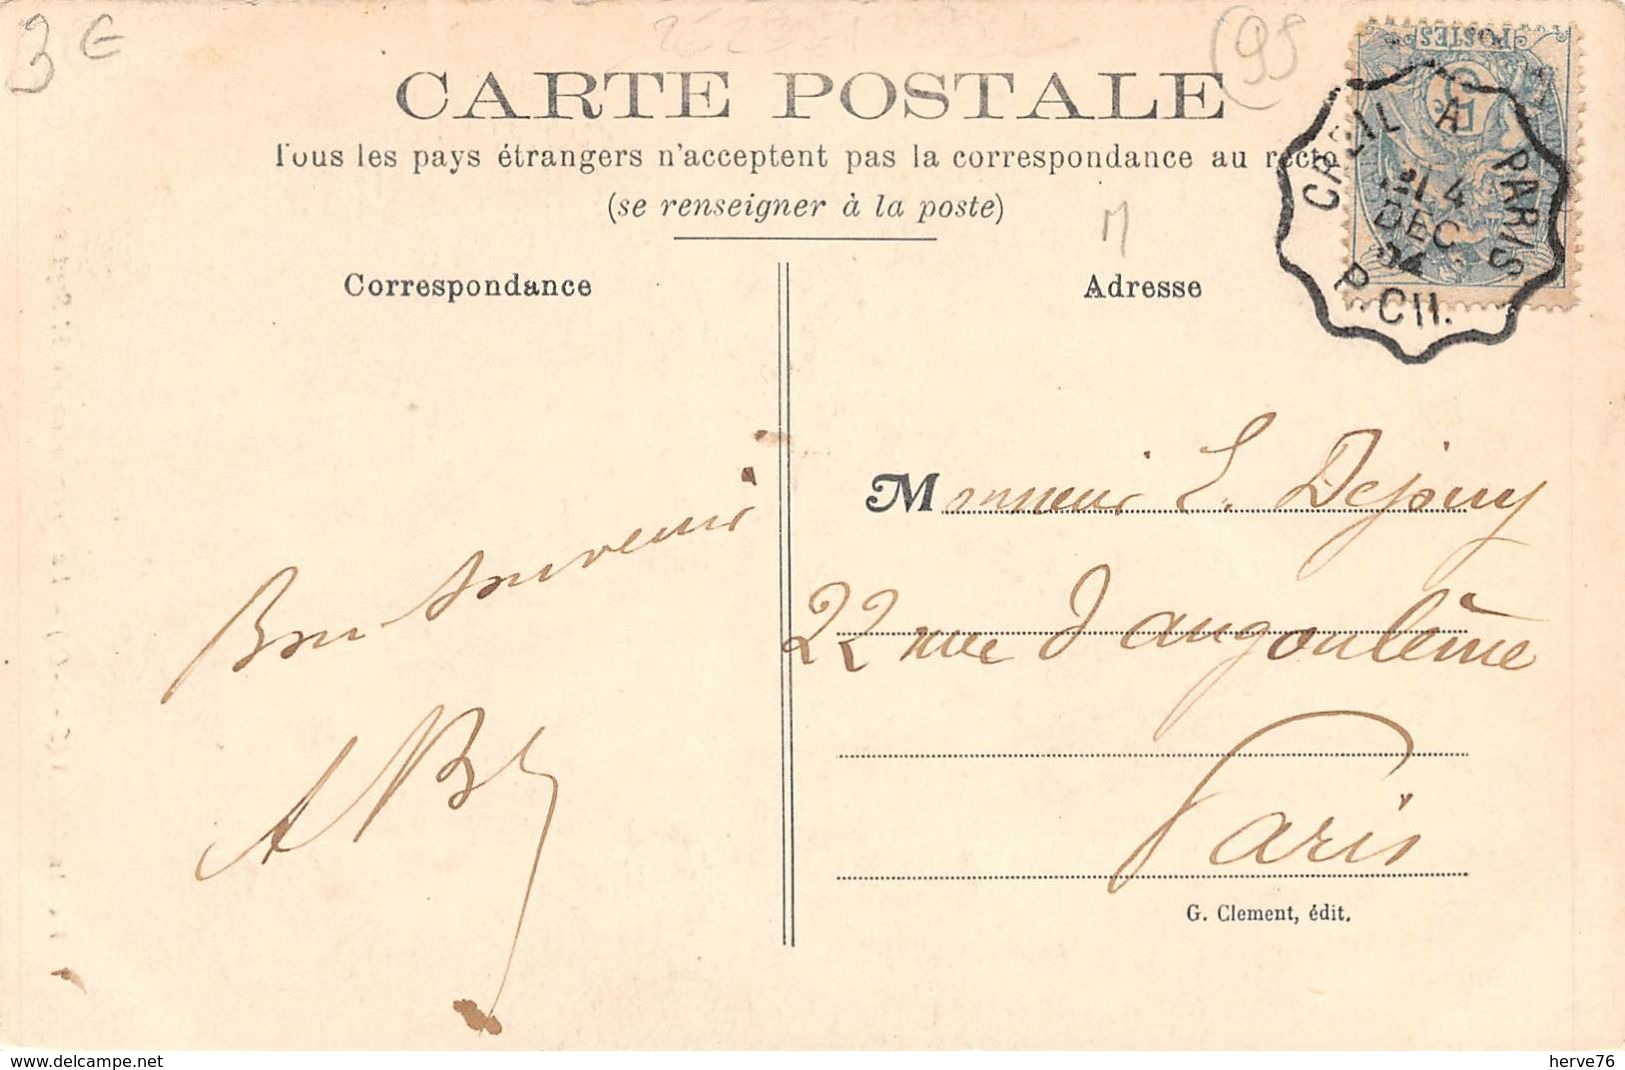 3 €
(95
CARTE POSTALE
Tous les pays étrangers n'acceptent pas la correspondance au recto
(se renseigner à la poste)
M
POSTES
CREIL A PARIS
14
DEC
04
P. CH.
Correspondance
Adresse
Bon Souvenir
AB
Monsieur E. Dejouy
22 rue d'angoulême
Paris
G. Clement, édit.
www.delcampe.net
herve76